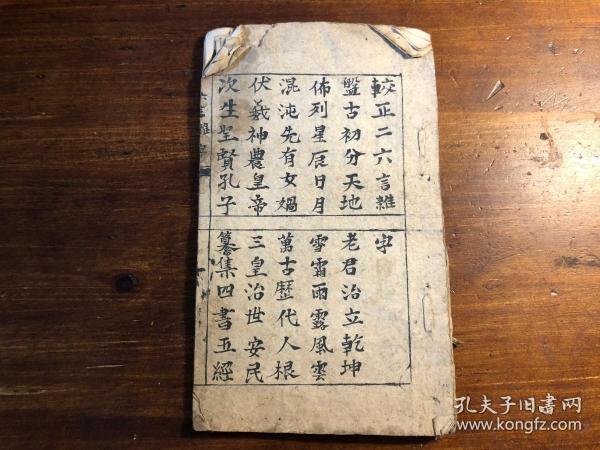 較正二六言雜字
盤古初分天地
老君治立乾坤
佈列星辰日月
雪霜雨露風雲
混沌先有女媧
萬古歷代人根
伏羲神農皇帝
三皇治世安民
次生聖賢孔子
纂集四書五經
孔夫子旧書网
www.kongfz.com